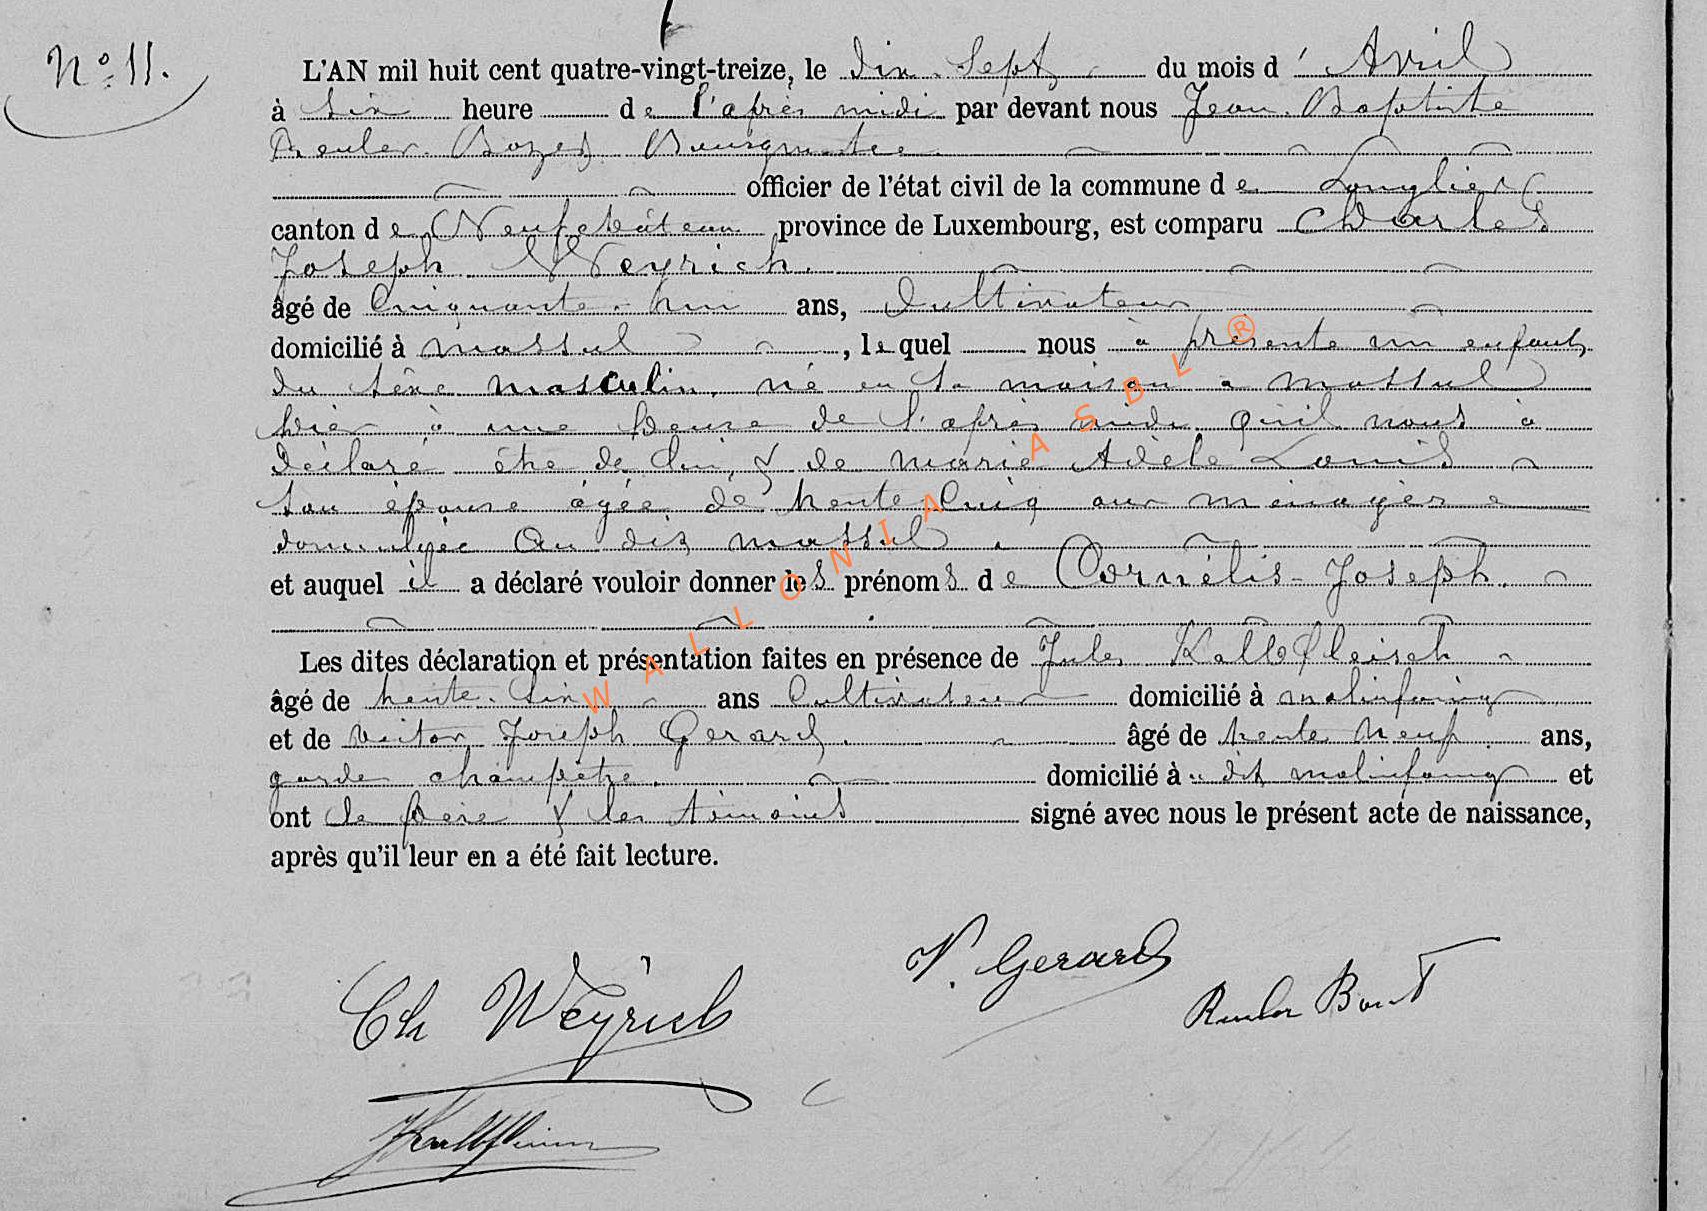 N° 11.
L'AN mil huit cent quatre-vingt-treize, le dix-Sept du mois d' Avril
à six heure de l'après midi par devant nous Jean-Baptiste
Reuler Bourgmestre
officier de l'état civil de la commune de Longlier
canton de Neufchâteau province de Luxembourg, est comparu Charles
Joseph Weyrich.
âgé de Cinquante-hun ans, Cultivateur
domicilié à massul, lequel nous à présente un enfant
du sexe masculin, né en sa maison à massul
hier à une heure de l'après midi qu'il nous à
déclaré être de lui, & de marie Adèle Louis
son épouse âgée de trente cinq ans ménagère
domiciliée au dit massul
et auquel il a déclaré vouloir donner les prénoms de Cornélis-Joseph.
Les dites déclaration et présentation faites en présence de Jules Kalbfleisch
âgé de trente-six ans Cultivateur domicilié à malinfaing
et de victor Joseph Gerard. âgé de trente neuf ans,
garde champêtre. domicilié à u dit malinfaing et
ont le père & les témoins signé avec nous le présent acte de naissance,
après qu'il leur en a été fait lecture.
Ch Weyrich
V. Gerard
JKalbfleisch
WALLONIA ASBL ®